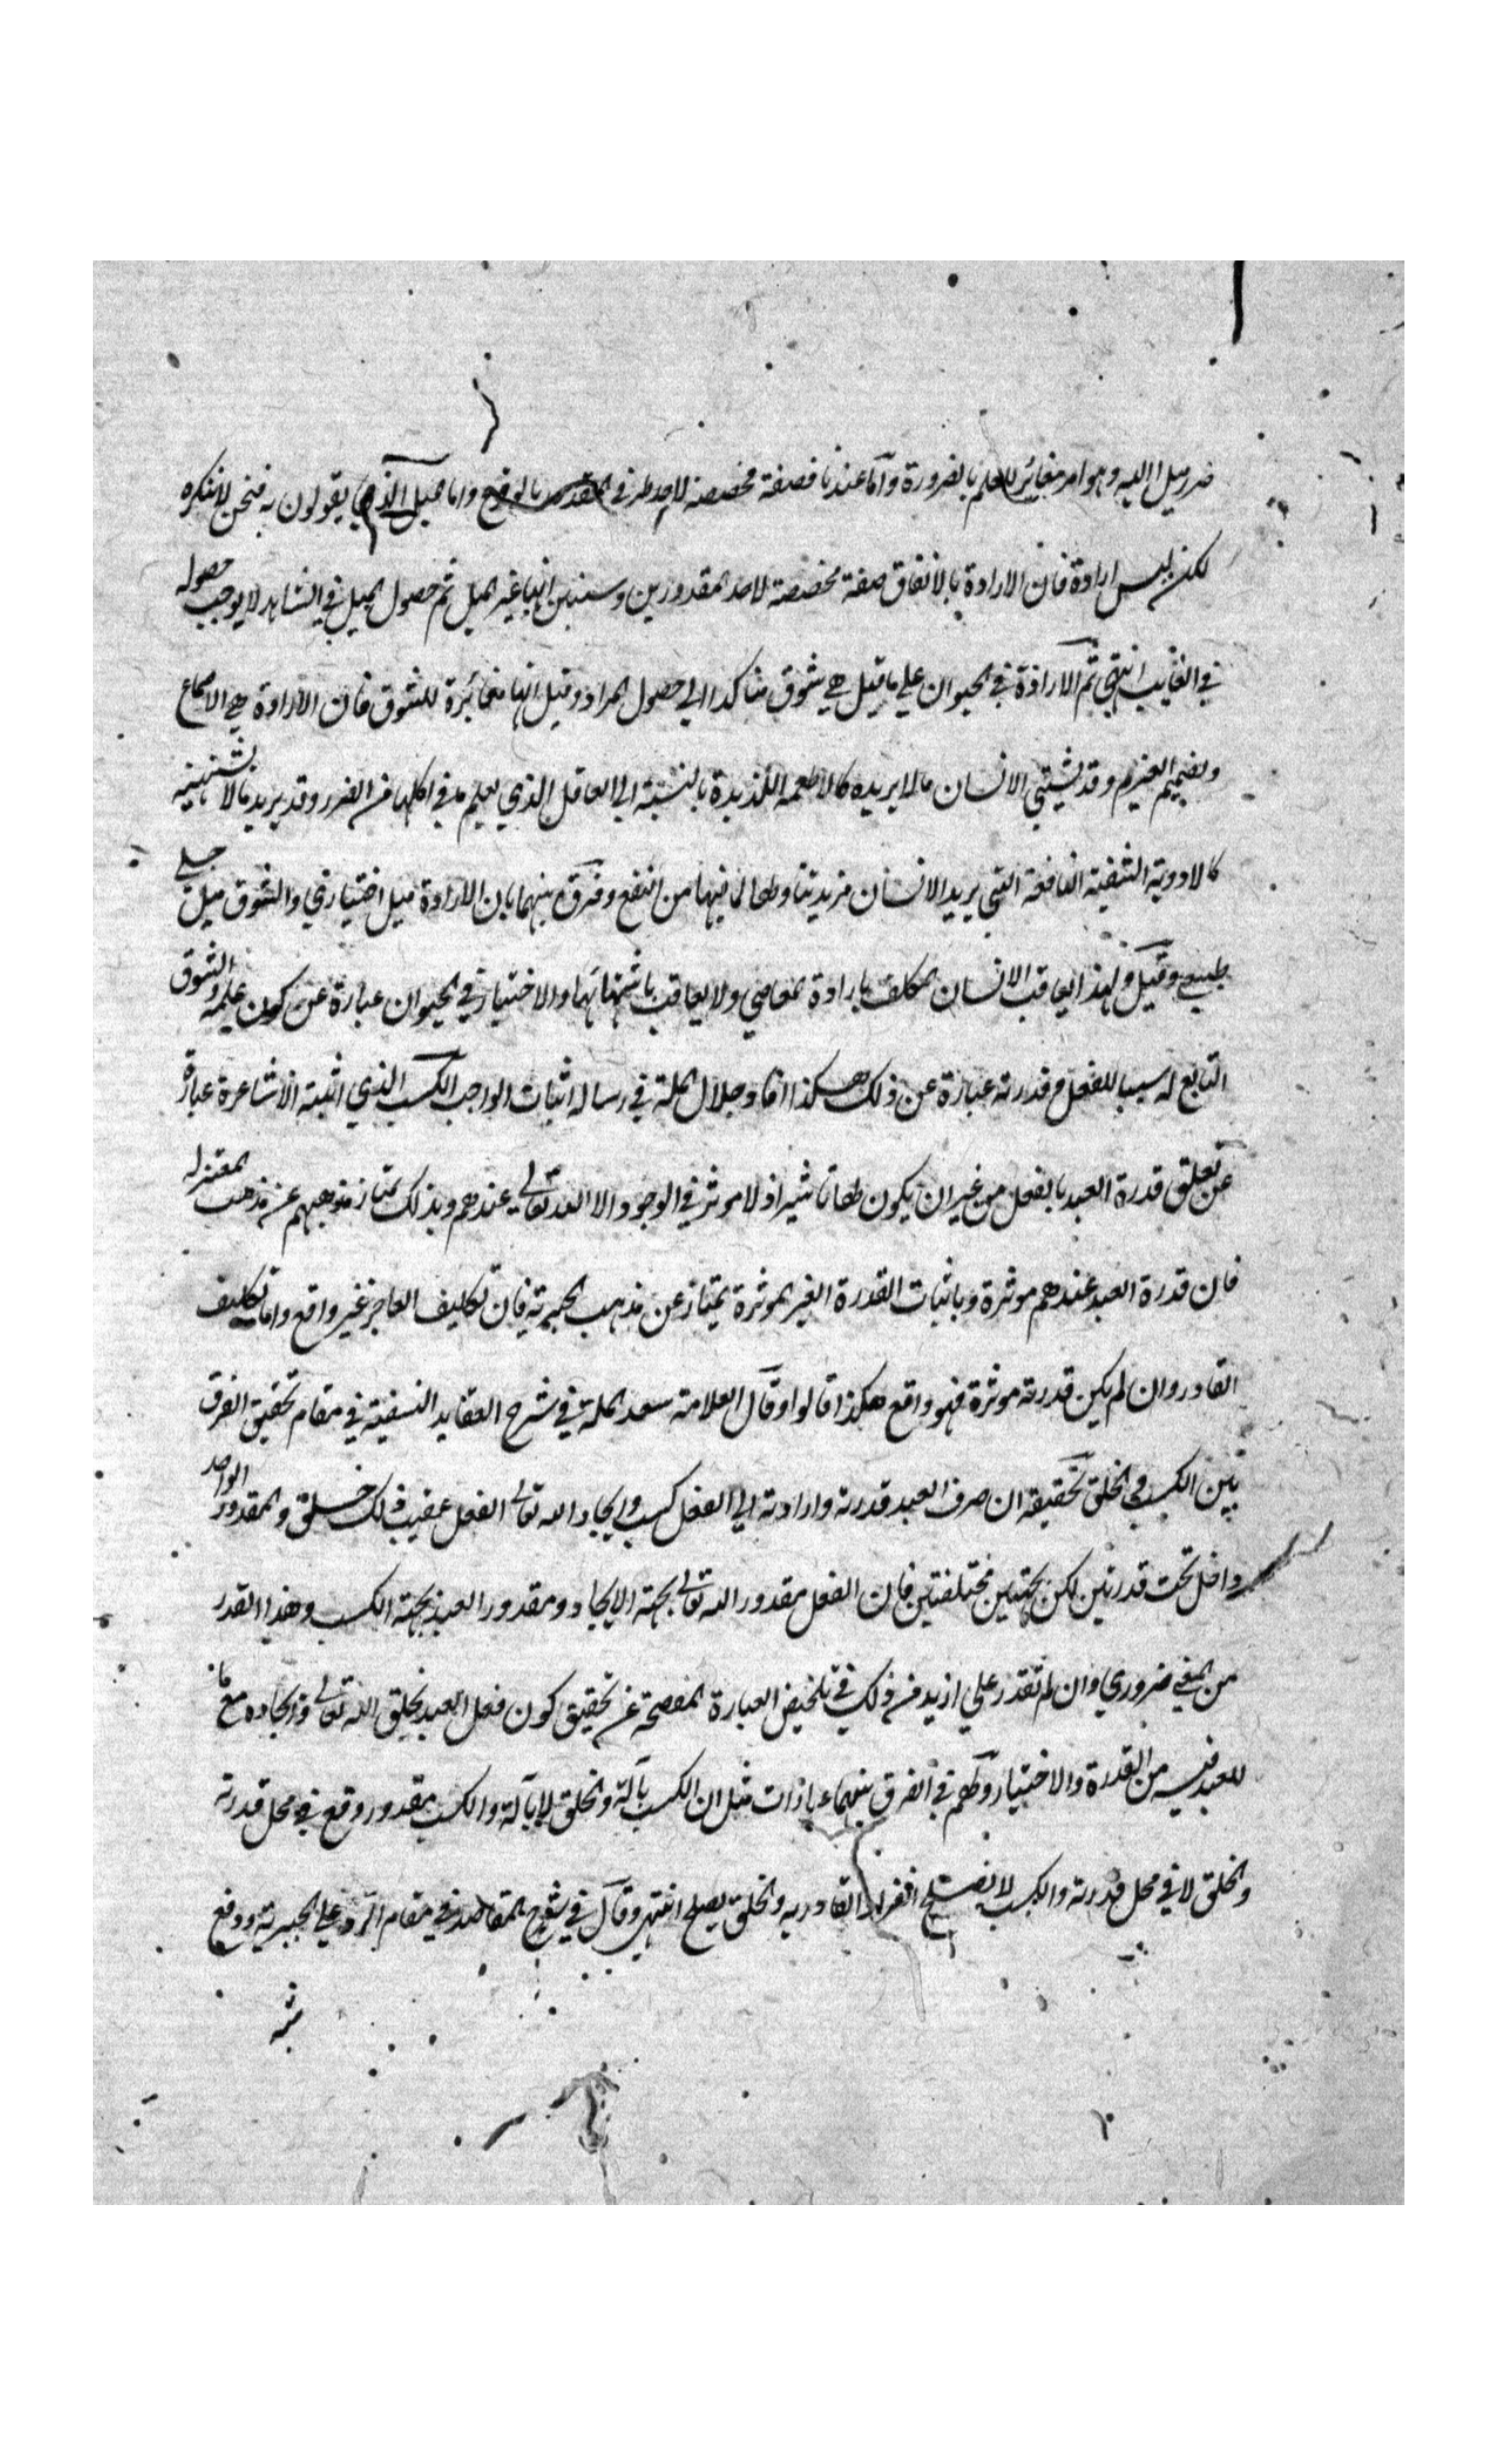 ضرر ميل اليه وهو امر مغائر للعلم بالضرورة واما عندنا فصفة مخصصة لاحد طرفي المقدور بالوقوع واما الميل الذي يقولون به فنحن لا ننكره
لكن ليس ارادة فان الارادة بالاتفاق صفة مخصصة لاحد المقدورين وسنبين انها غير الميل ثم حصول الميل في الشاهد لا يوجب حصوله
في الغايب انتهي ثم الارادة في الحيوان علي ما قيل هي شوق متاكد الي حصول المراد وقيل انها مغائرة للشوق فان الارادة هي الاجماع
وتصميم العزيم وقد يشتهي الانسان ما لا يريده كالاطعمة اللذيذة بالنسبة الي العاقل الذي يعلم ما في اكلها من الضرر وقد يريد ما لا يشتهيه
كالادوية الشفية النافعة التي يريد الانسان تناولها لما فيها من النفع وفرق بينهما بان الارادة ميل اختياري والشوق ميل جبلي
طبيعي وقيل ولهذا يعاقب الانسان المكلف بارادة المعاصي ولا يعاقب باشتهائها والاختيار في الحيوان عبارة عن كون علمه والشوق
التابع له سببا للفعل وقدرته عبارة عن ذلك هكذا افاد جلال الملة في رسالة اثبات الواجب الكسب الذي اثبته الاشاعرة عبارة
عن تعلق قدرة العبد بالفعل من غير ان يكون لها تاثير اذ لا موثر في الوجود الا الله تعالي عندهم وبذلك يمتاز مذهبهم عن مذهب المعتزله
فان قدرة العبد عندهم موثرة وباثبات القدرة الغير الموثرة يمتاز عن مذهب الجبرية فان تكليف العاجز غير واقع واما تكليف
القادر وان لم يكن قدرته موثرة فهو واقع هكذا قالوا وقال العلامة سعد الملة في شرح العقايد النسفية في مقام تحقيق الفرق
بين الكسب والخلق تحقيقه ان صرف العبد قدرته وارادته الي الفعل كسب وايجاد الله تعالي الفعل عقيب ذلك خلق والمقدور الواحد
داخل تحت قدرتين لكن بجهتين مختلفتين فان الفعل مقدور الله تعالي بجهة الايجاد ومقدور العبد بجهة الكسب وهذا القدر
من المعني ضروري وان لم نقدر علي ازيد من ذلك في تلخيص العبارة المفصحة عن تحقيق كون فعل العبد بخلق الله تعالي وايجاده مع ما
للعبد فيه من القدرة والاختيار ولهم في الفرق بينهما عبارات مثل ان الكسب بآلة والخلق لا بآلة والكسب مقدور وقع في محل قدرته
والخلق لا في محل قدرته والكسب لا يصلح انفراد القادر به والخلق يصلح انتهي وقال في شرح المقاصد في مقام الرد علي الجبرية ودفع
شبه